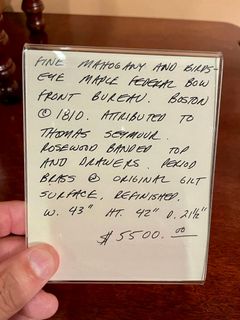 FINE MAHOGANY AND BIRDS-
EYE MAPLE FEDERAL BOW
FRONT BUREAU. BOSTON
@ 1810. ATTRIBUTED TO
THOMAS SEYMOUR.
ROSEWOOD BANDED TOP
AND DRAWERS. PERIOD
BRASS @ ORIGINAL GILT
SURFACE. REFINISHED.
W. 43" HT. 42" D. 21½"
$5500.00